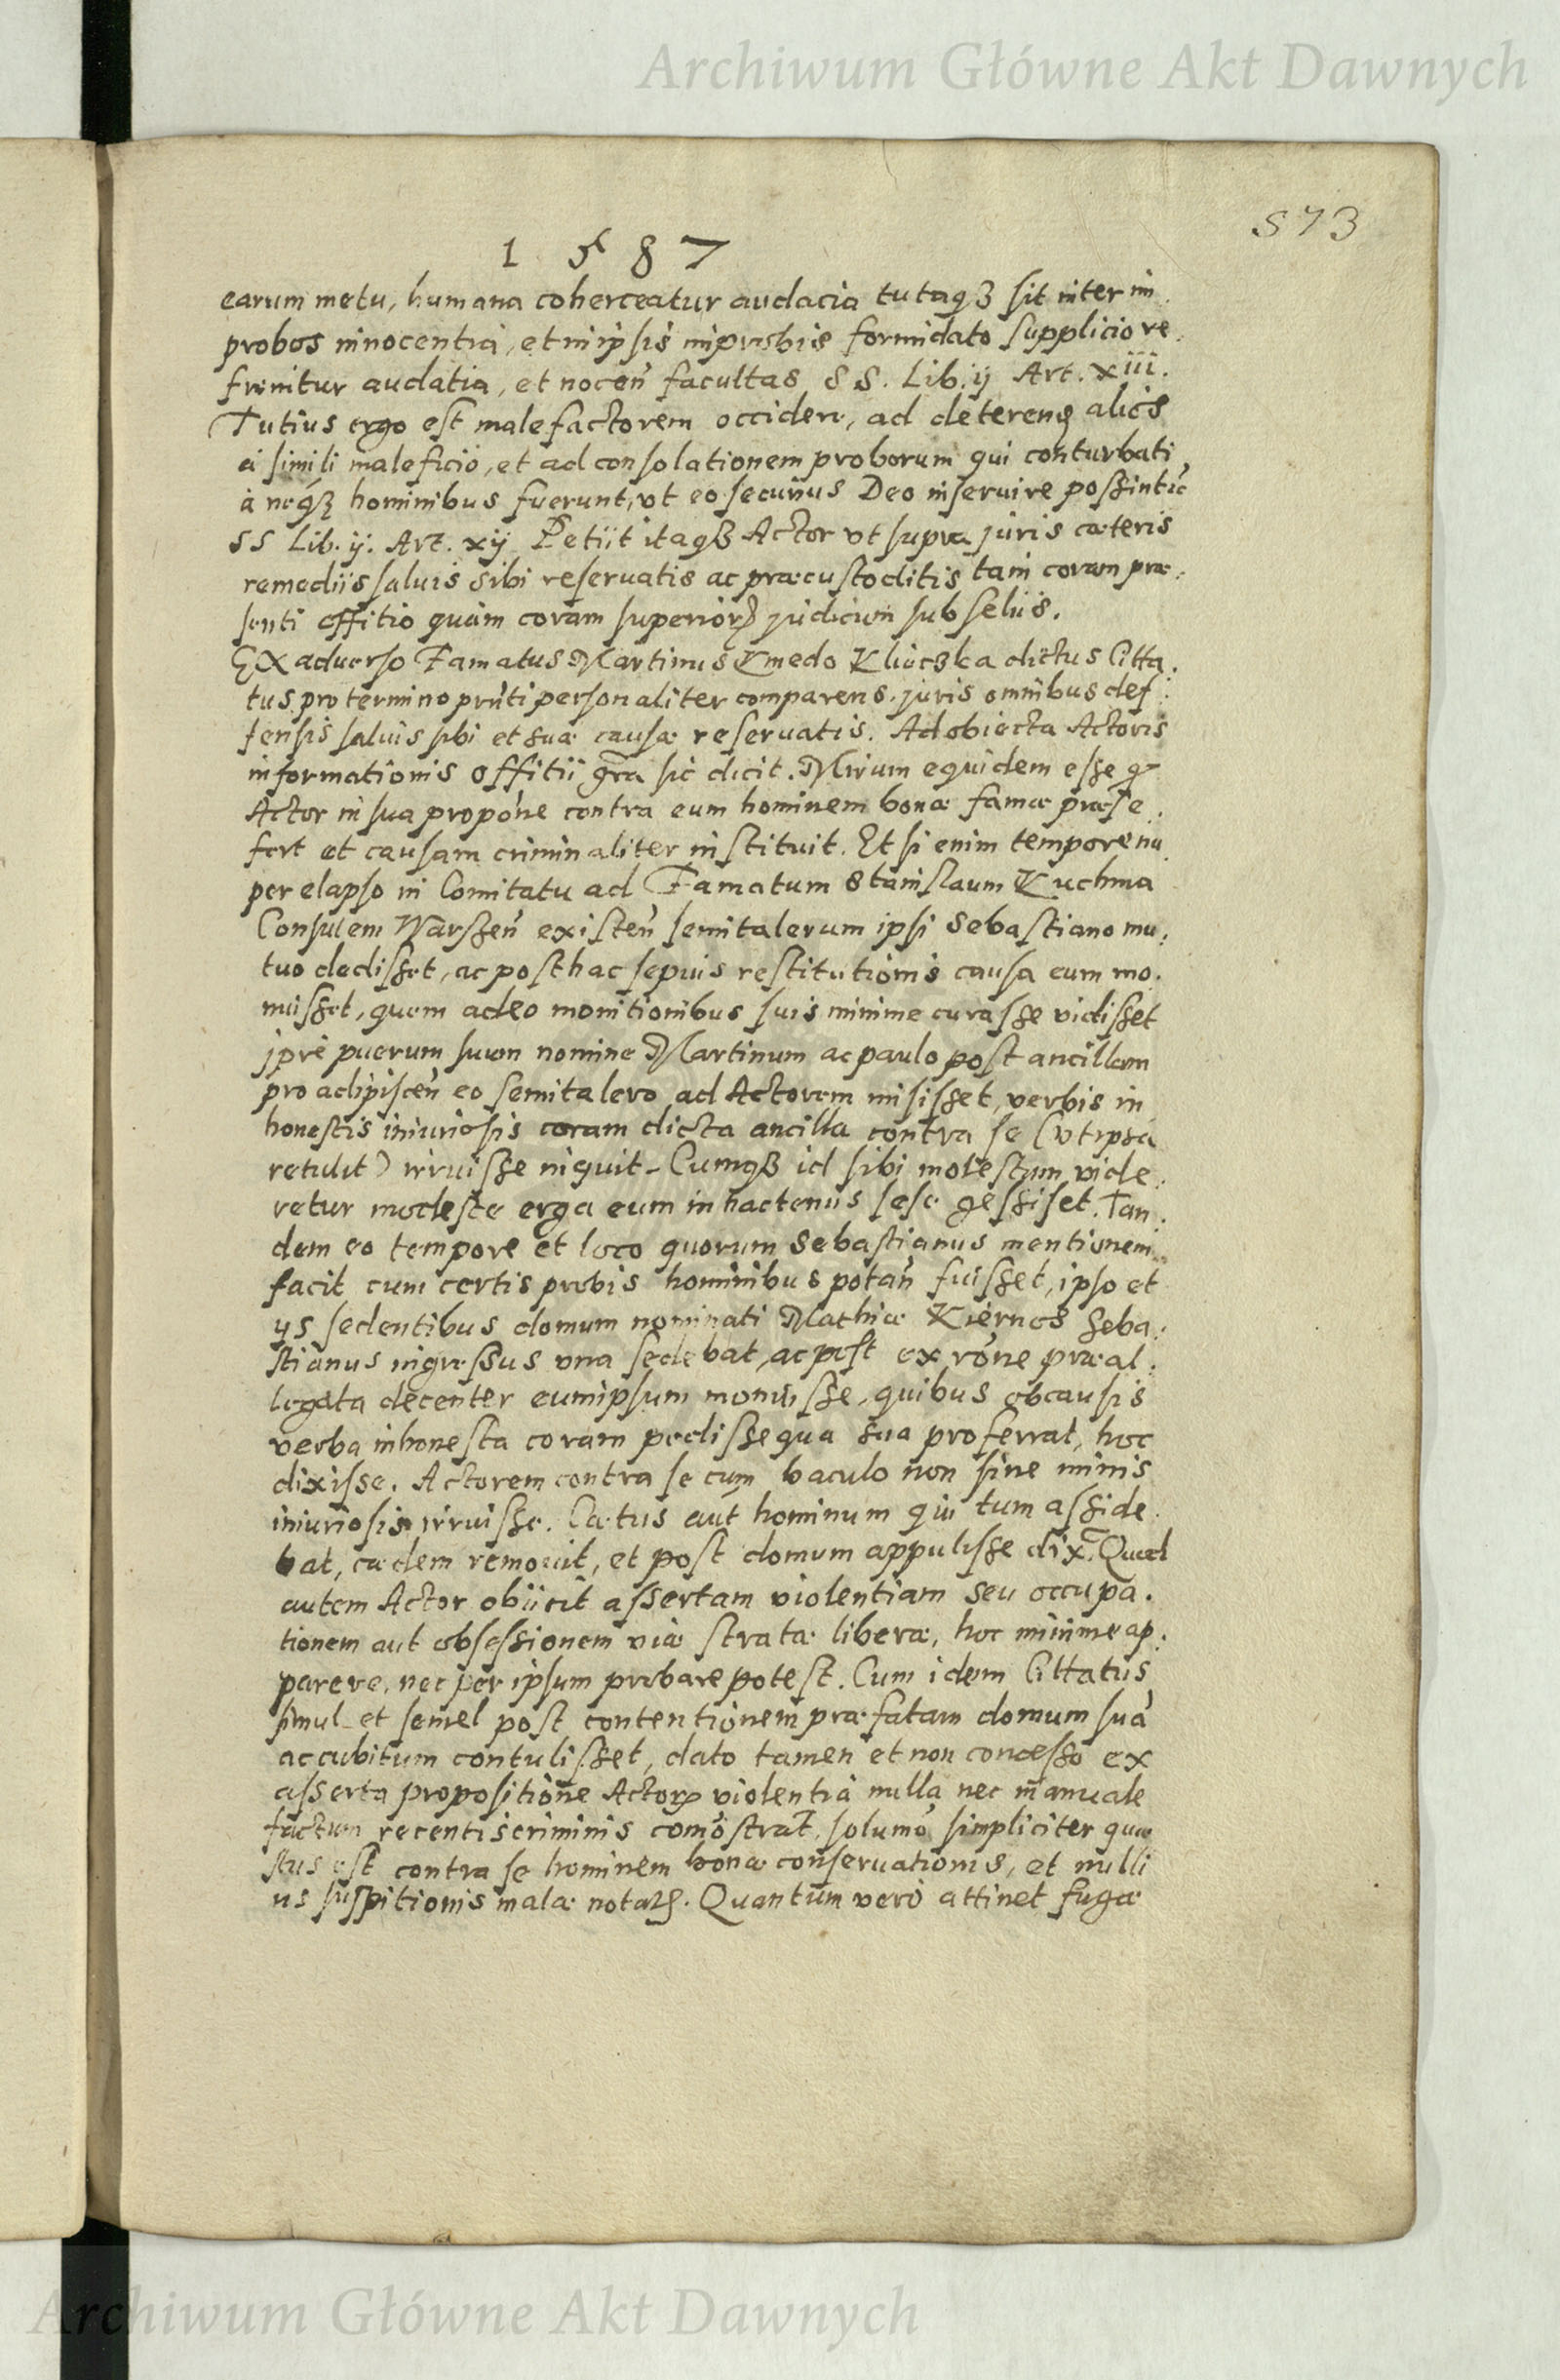 Archiwum Główne Akt Dawnych
573
1587
earum metu, humana coherceatur audacia tutaqȝ sit inter im
probos innocentia, et in ipsis improbis formidato supplicio re
frenitur audatia, et nocen̄ facultas SS. Lib. ij Art. xiii.
Tutius ergo est malefactorem occidere, ad deterreng alios
a simili maleficio, et ad consolationem proborum qui conturbati
à neqȝ hominibus fuerunt, vt eo securius Deo inseruire possint
SS Lib. ij. Art. xij Petiit itaqȝ Actor vt supra juris cæteris
remediis saluis sibi reseruatis ac præcustoditis tam coram præ
senti offitio quàm coram superiorꝝ judicium subseliis.
Ex aduerso Famatus Martinus Kmedo Klioczka dictus Citta
tus pro termino pnti personaliter comparens. juris omnibus def
fensis saluis sibi et suæ causæ reseruatis. Ad obiecta Actoris
informationis offitii gra sic dicit. Mirum equidem esse q
Actor in sua propone contra eum hominem bonæ famæ præse
fert et causam criminaliter instituit. Et si enim tempore nu
per elapso in Comitatu ad Famatum Stanislaum Kuchma
Consulem Warszen̄ existen̄ semitalerum ipsi Sebastiano mu
tuo dedisset, ac posthac sepius restitutionis causa eum mo
nuisset, quem adeo monitionibus suis minime curasse vidisset
ipre puerum suum nomine Martinum ac paulo post ancillam
pro adipiscen̄ eo semitalero ad Actorem misisset, verbis in
honestis iniuriosis coram dicta ancilla contra se (vt ipsa
retulit) irruisse inquit. Cumqȝ id sibi molestum vide
retur modeste erga eum in hactenus sese gessiset. Tan
dem eo tempore et loco quorum Sebastianus mentionem
facit cum certis probis hominibus potan̄ fuisset, ipso et
ijs sedentibus domum nominati Mathiæ Kiernos Seba
stianus ingressus vna sedebat, ac post ex rone præal
legata decenter eum ipsum monuisse, quibus ob causis
verba inhonesta coram pedissequa sua proferrat, hoc
dixisse. Actorem contra se cum baculo non sine minis
iniuriosis irruisse. Cætus aut hominum qui tum asside
bat, eadem remouit, et post domum appulisse dix. Quod
autem Actor obiicit assertam violentiam seu occupa
tionem aut obsessionem viæ stratæ liberæ, hoc minime ap
parere, nec per ipsum probare potest. Cum idem Cittatus
simul et semel post contentionem præfatam domum suā
accubitum contulisset, dato tamen et non concesso ex
asserta propositione Actorꝝ violentia nulla nec manuale
factum recentis criminis comōstrat, solumo simpliciter quæ
stus est contra se hominem bonæ conseruationis, et nulli
us suspitionis malæ notatꝝ. Quantum verò attinet fugæ
Archiwum Główne Akt Dawnych